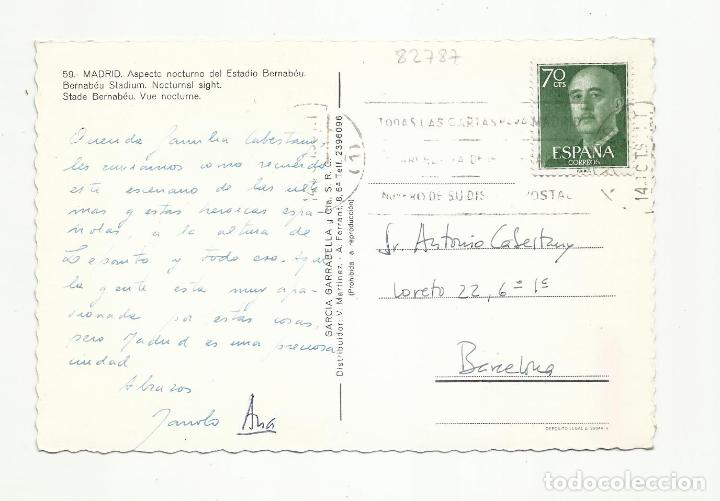 82787
59.- MADRID. Aspecto nocturno del Estadio Bernabéu.
Bernabéu Stadium. Nocturnal sight.
Stade Bernabéu. Vue nocturne.
Querida familia Cabestany
les enviamos como recuerdo
este escenario de las últi
mas y estas heroicas espa
ñolas, a la altura de
Lepanto y todo eso. Aquí
la gente esta muy apa
sionada por estas cosas,
pero Madrid es una preciosa
ciudad
Abrazos
Manolo Ana
GARCIA GARRABELLA y Cía. S. R. C.
Distribuidor: V. Martínez. - A. Ferrant, 6, 6ª Telf. 2396096
(Prohibida la reproducción)
70
CTS
ESPAÑA
CORREOS
(1)
TODAS LAS CARTAS PARA MADRID
NUMERO DE SU DIS POSTAL
Sr. Antonio Cabestany
Loreto 22, 6º 1ª
Barcelona
DEPOSITO LEGAL B.
todocoleccion.net